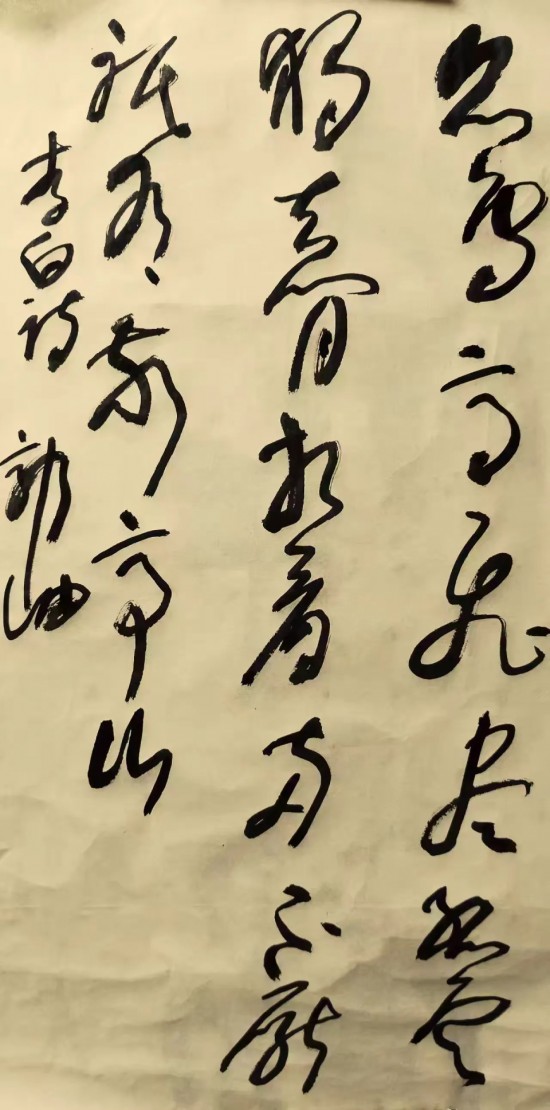 众鸟高飞尽孤云
独去闲相看两不厌
祇有敬亭山
李白诗